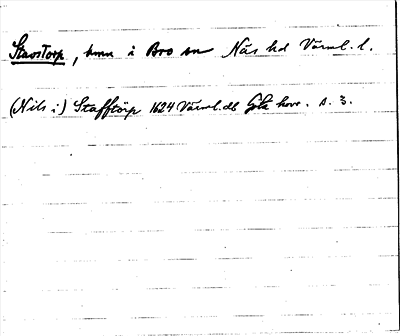 Stavstorp, hmn i Bro sn Näs hd Värml. l.
(Nils i:) Stafftörp 1624 Värml. db Göta hovr. s. 3.